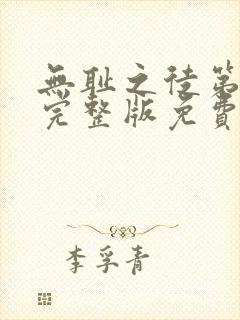 無耻之徒第
完整版免費
李孚青